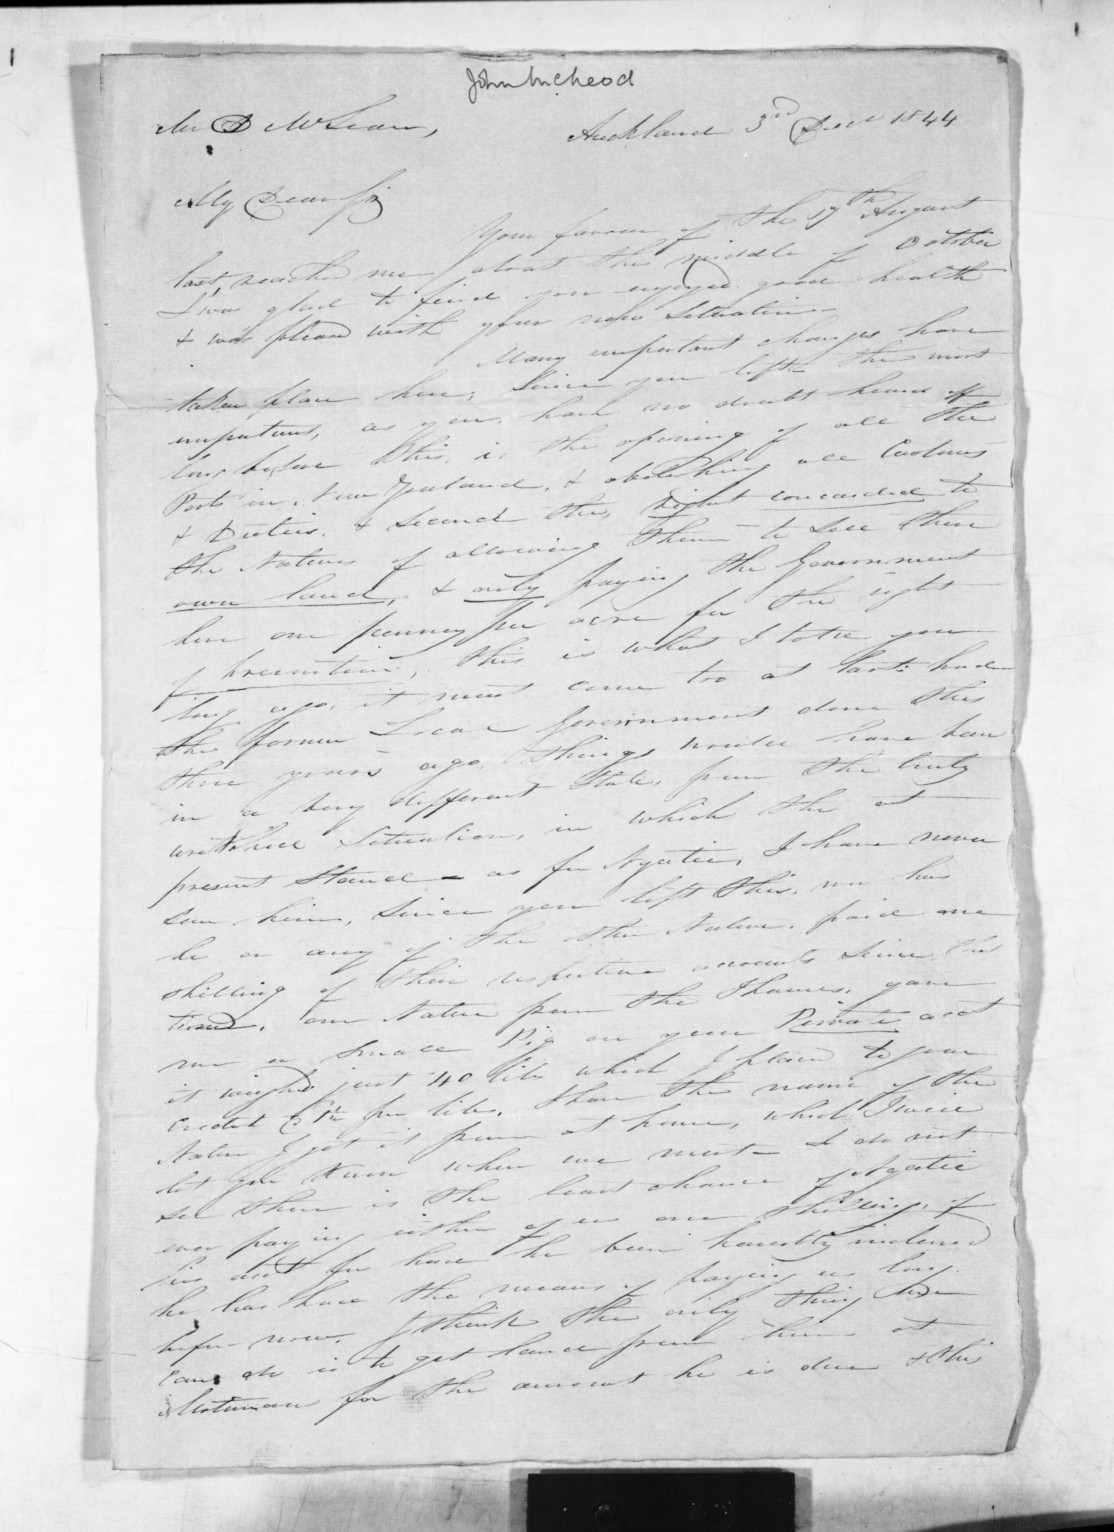 John McLeod
Mr D McLean,
Auckland 3rd Decr 1844
My Dear Sir
Your favour of the 17th August
last, reached me about the middle of October
I was glad to find you enjoyed good health
& was pleased with your new Situation
Many important changes have
taken place here, Since you left the most
important, as you have no doubt heard of
long before this, is the opening of all the
Ports in New Zealand, & abolishing all Customs
& Duties, & Second the right conceeded to
the Natives of allowing them to Sell their
own land, & only paying the Government
here one penny per acre for the right
of preemtion, this is what I told you
long ago, it must come too at last had
the former Local Government done this
three years ago, things would have been
in a very different State, from the truly
wretched Situation, in which the at
present Stand - as for Ngatai, I have never
seen him, Since you left this, nor has
he or any of the other Natives, paid one
shilling of their respective accounts Since the
time, one Native from the Thames, gave
me a Small Pig on your Private acct
it weighed just 40 lbs which I placed to your
Credit @ per lbs, I have the name of the
Native I got it from at home, which I will
let you know when we meet - I do not
see there is the least chance of Ngatai
ever paying either of us one shilling, of
his acct for had he been honestly inclined
he has had the means of paying us long
before now. I think the only thing we
can do is to get land from him at
Motunau for the amount he is due & this